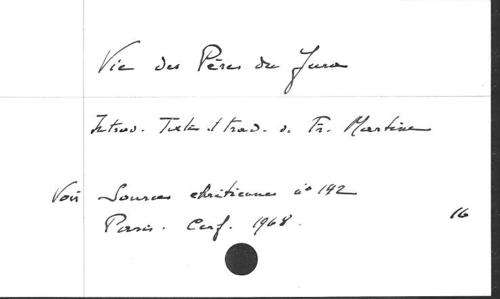 Vie des Pères du Jura
Introd. Texte et trad. de Fr. Martine
Voir Sources chrétiennes n° 142
Paris. Cerf. 1968.
16